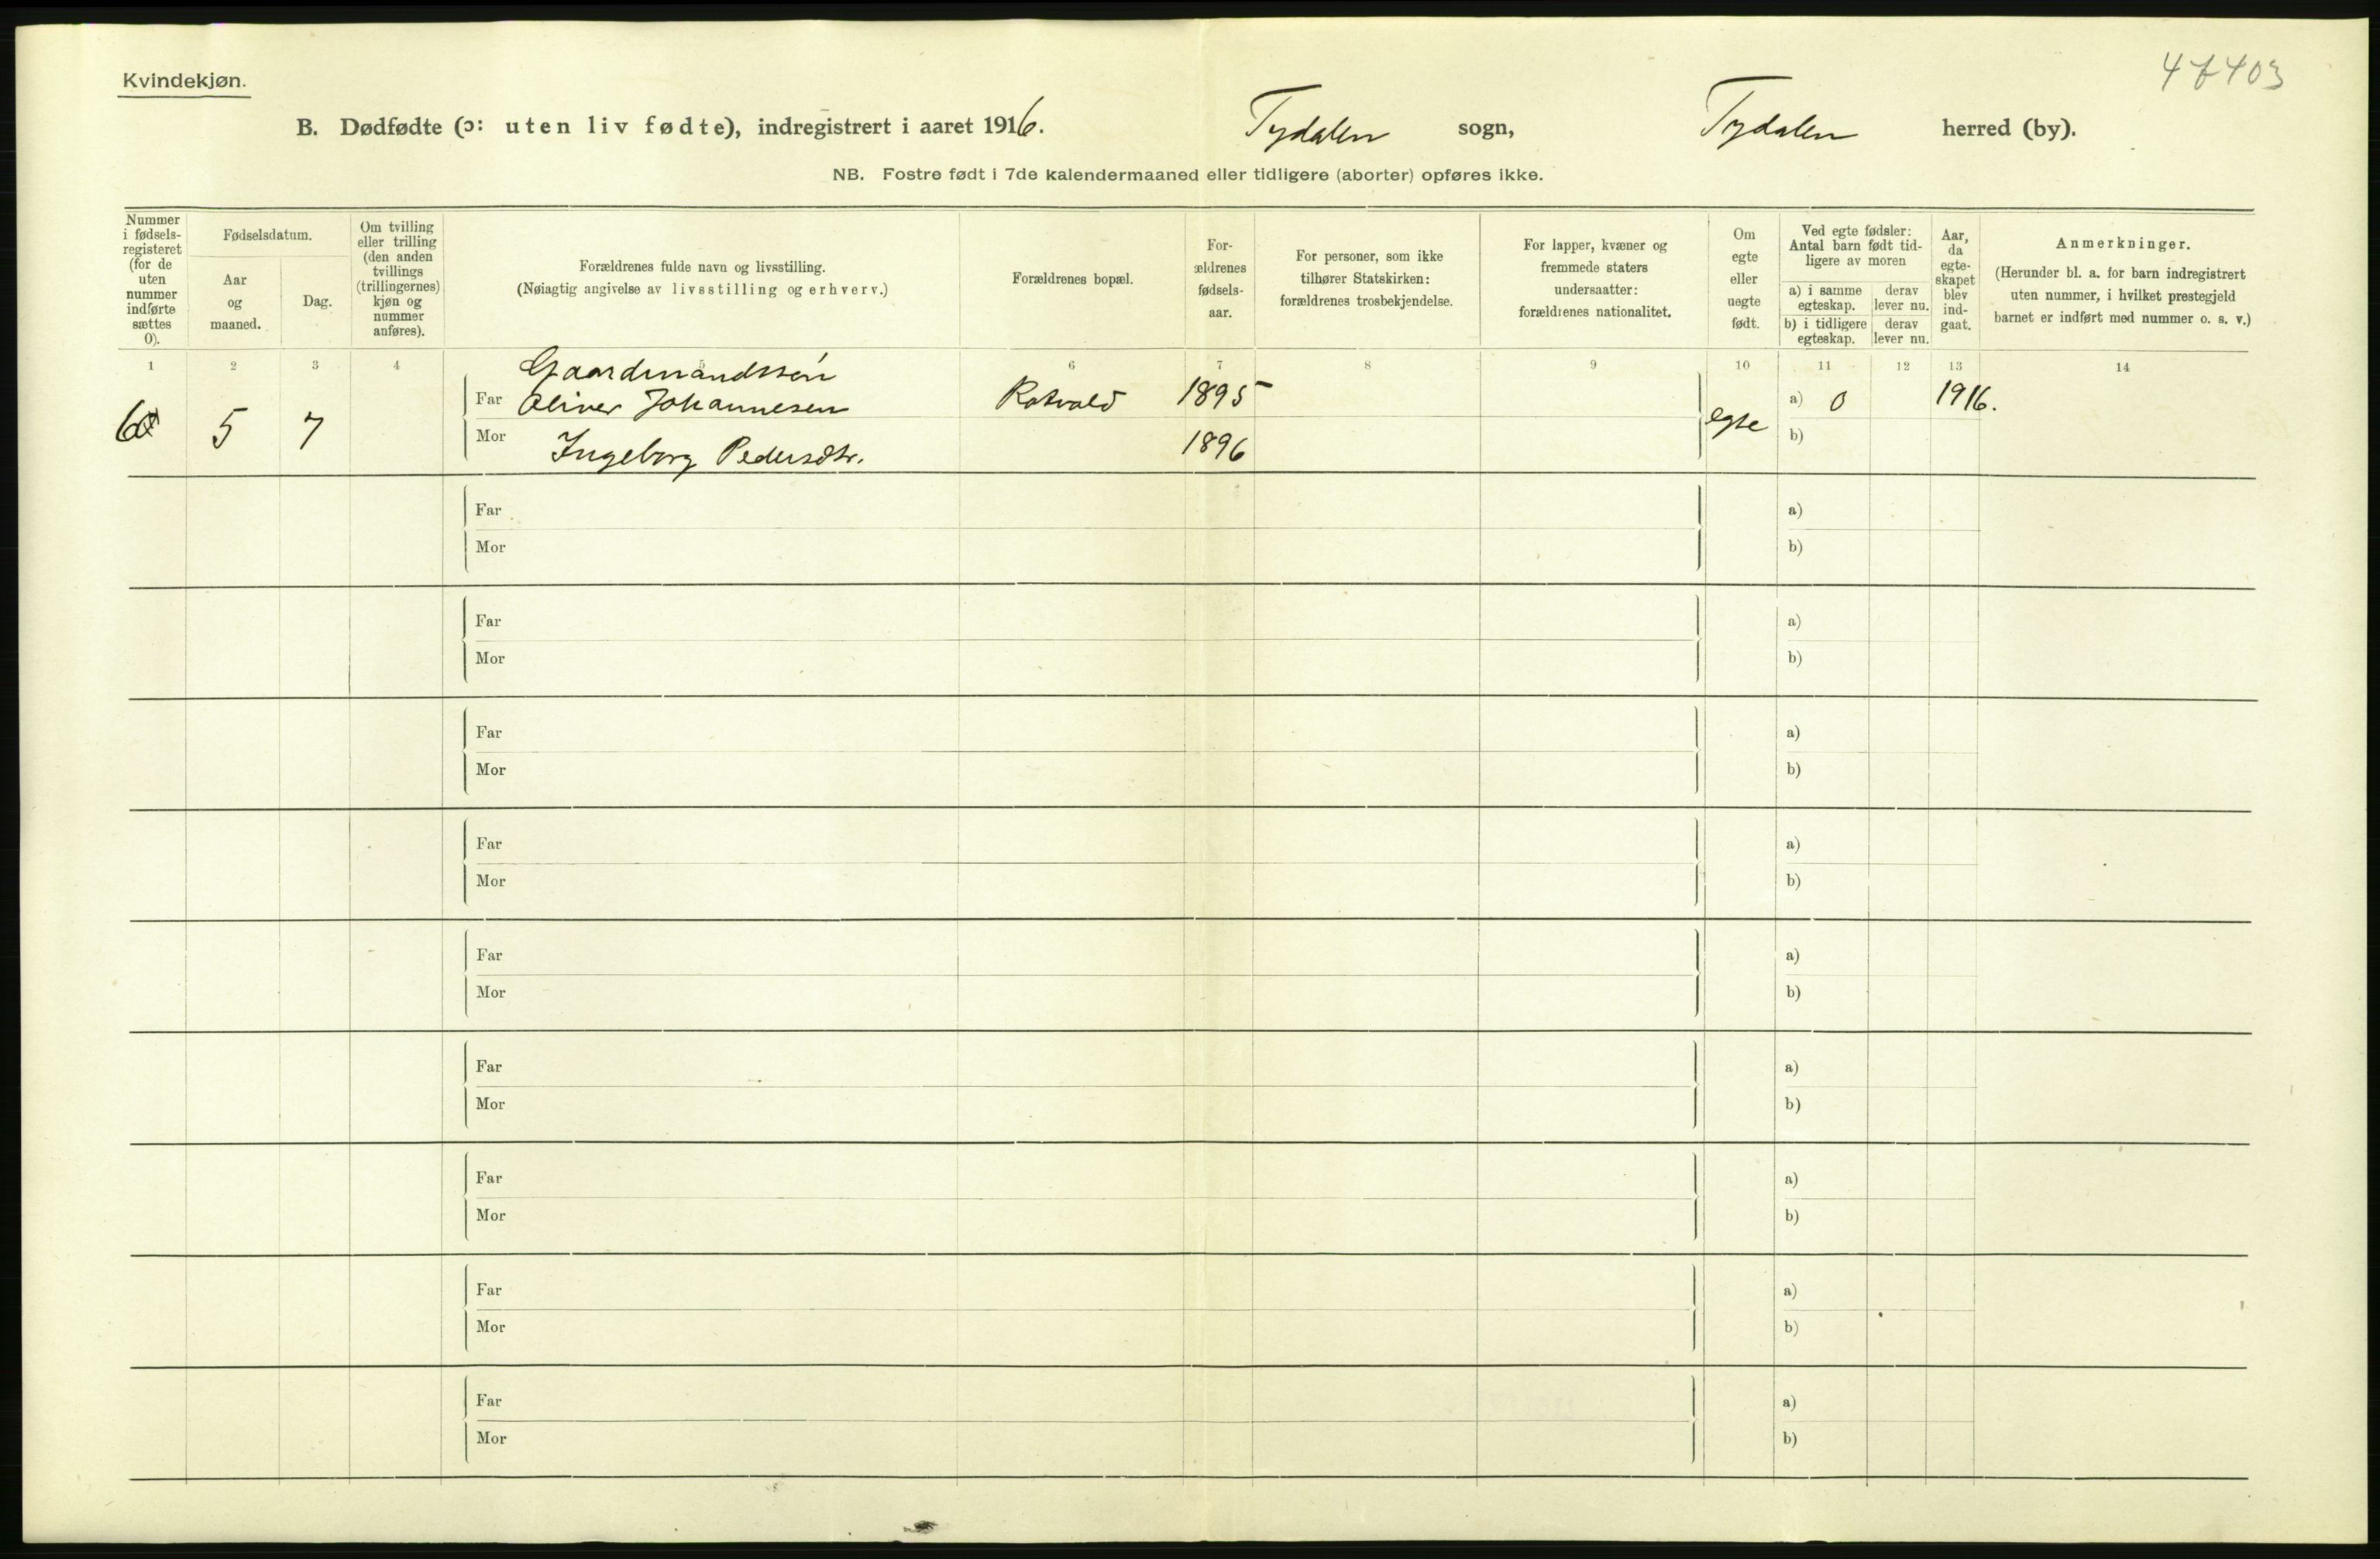 47403
Kvindekjøn.
B. Dødfødte (ɔ: uten liv fødte), indregistrert i aaret 1916. Tydalen sogn, Tydalen herred (by).
NB. Fostre født i 7de kalendermaaned eller tidligere (aborter) opføres ikke.
Nummer
i fødsels-
registeret
(for de
uten
nummer
indførte
sættes
0).
Fødselsdatum.
Aar
og
maaned.
Dag.
Om tvilling
eller trilling
(den anden
tvillings
(trillingernes)
kjøn og
nummer
anføres).
Forældrenes fulde navn og livsstilling.
(Nøiagtig angivelse av livsstilling og erhverv.)
Forældrenes bopæl.
For-
ældrenes
fødsels-
aar.
For personer, som ikke
tilhører Statskirken:
forældrenes trosbekjendelse.
For lapper, kvæner og
fremmede staters
undersaatter:
forældrenes nationalitet.
Om
egte
eller
uegte
født.
Ved egte fødsler:
Antal barn født tid-
ligere av moren
a) i samme
egteskap.
derav
lever nu.
b) i tidligere
egteskap.
derav
lever nu.
Aar,
da
egte-
skapet
blev
ind-
gaat.
Anmerkninger.
(Herunder bl. a. for barn indregistrert
uten nummer, i hvilket prestegjeld
barnet er indført med nummer o. s. v.)
1 2 3 4 5 6 7 8 9 10 11 12 13 14
Gaardmandssøn
5 7 Far Oliver Johannesen Rotvold 1895 egte a) 0 1916.
Mor Ingeborg Pedersdtr. 1896 b)
Far a)
Mor b)
Far a)
Mor b)
Far a)
Mor b)
Far a)
Mor b)
Far a)
Mor b)
Far a)
Mor b)
Far a)
Mor b)
Far a)
Mor b)
Far a)
Mor b)